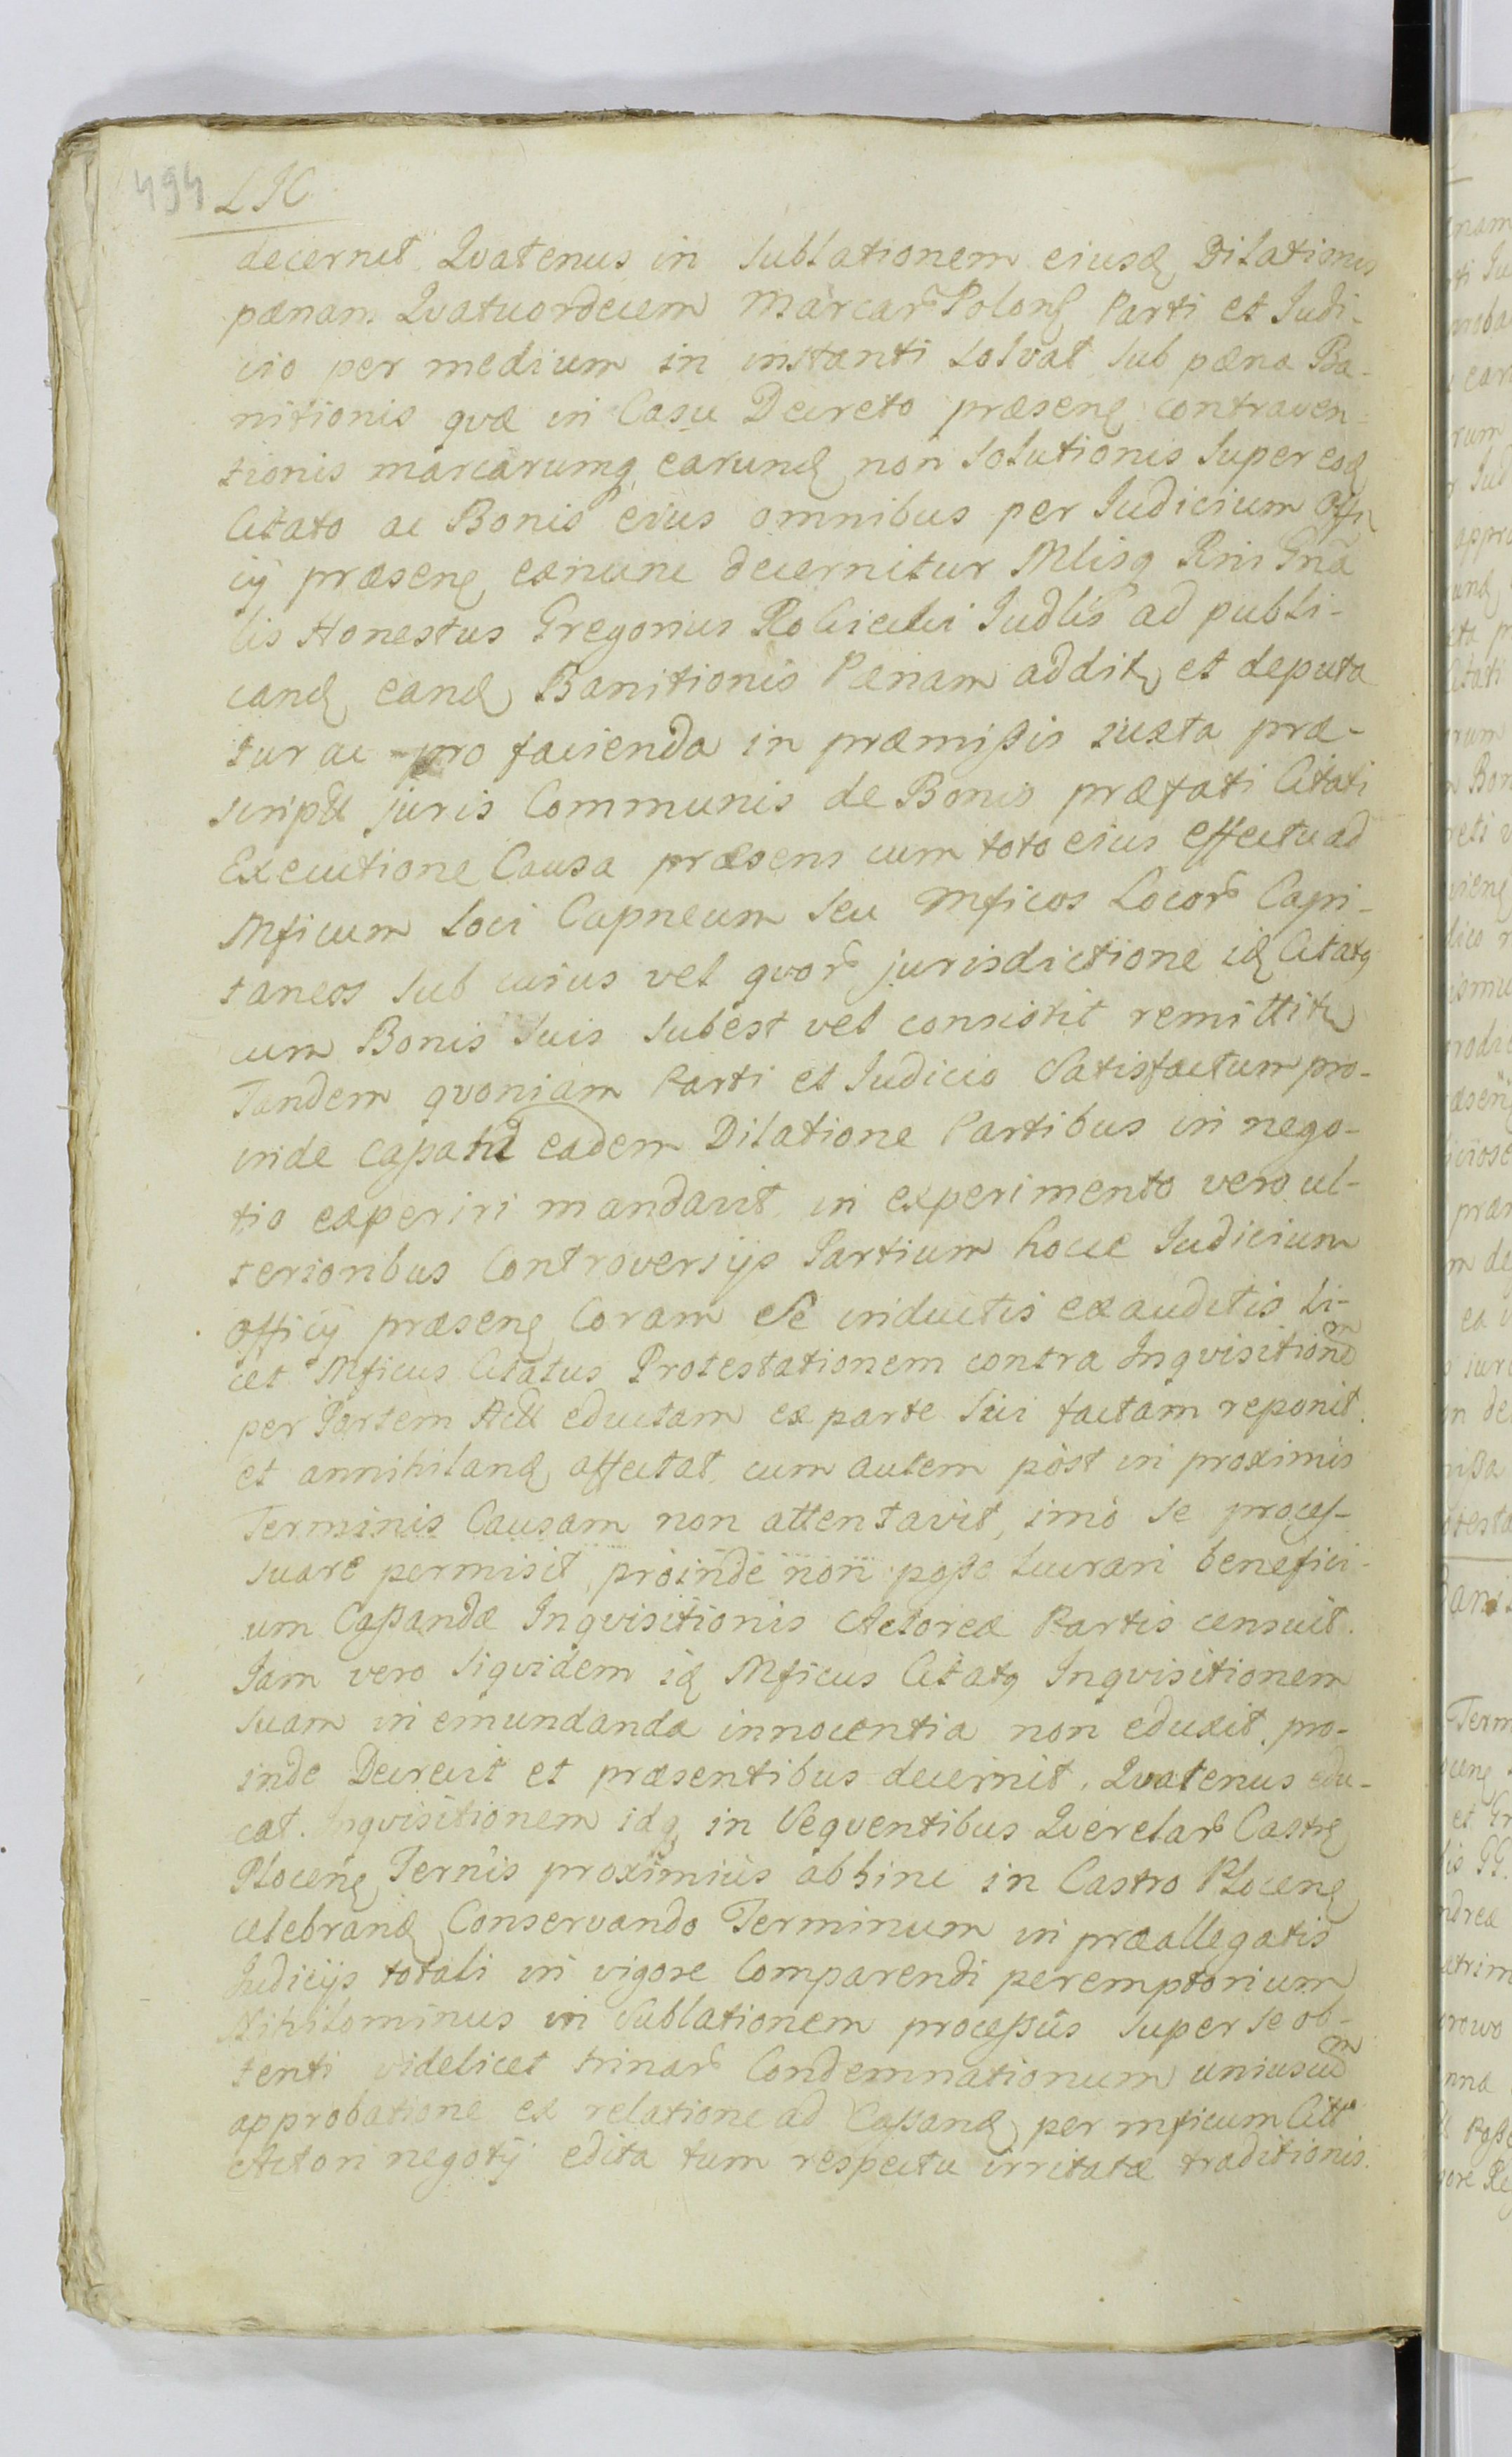 494 LIC
decernit Qvatenus in Sublationem eiusd Dilationis
pænam Qvatuordecem Marcar Polon Parti et Judi-
cio per medium in instanti Solvat Sub pæna Ba-
nitionis qvæ in Casu Decreto præsen contraven-
tionis marcarumq earund non Solutionis Super eod
Citato ac Bonis eius omnibus per Judicium Offi
cij præsen exnunc decernitur Mlisq Rni Gna
lis Honestus Gregorius Judlis ad publi-
cand eand Banitionis Pænam addit et deputa
tur ac pro facienda in præmißis iuxta præ-
script juris Communis de Bonis præfati Citati
Executione Causa præsens cum toto eius effectu ad
Mficum Loci Capneum seu Mficos Locor Capi-
taneos Sub cuius vel qvor jurisdictione id Citatq
cum Bonis Suis Subest vel consistit remittit
Tandem qvoniam Parti et Judicio Satisfactum pro-
inde caßata eadem Dilatione Partibus in nego-
tio experiri mandavit in experimento vero ul-
terioribus Controversijs Partium hocce Judicium
Officij præsen Coram Se inductis exauditis Li-
cet Mficus Citatus Protestationem contra Inqvisitionem
per Partem Act eductam ex parte Sui factam reponit
et annihiland affectat cum autem post in proximis
Terminis Causam non attentavit, imo se proces-
suare permisit, proinde non poße Lucrari benefici-
um Caßandæ Inqvisitionis Actoreæ Partis censuit.
Jam vero Siqvidem id Mficus Citatq Inqvisitionem
Suam in emundanda innocentia non eduxit, pro-
inde Decrevit et præsentibus decernit, Qvatenus edu-
cat Inqvisitionem idq in Seqventibus Qverelar Castr
Plocen Ternis proximius abhinc in Castro Plocen
celebrand Conservando Terminum in præallegatis
Judicijs totali in vigore Comparendi peremptorium
Nihilominus in Sublationem proceßus Super se ob-
tenti videlicet trinar Condemnationum uniuscum
approbatione ex relatione ad Caßand per mficum Citt
Actori negotij edita tum respectu irritatæ traditionis.